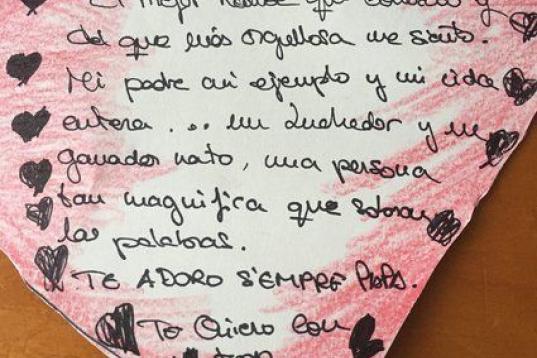 El mejor hombre que conozco y
del que más orgullosa me siento.
Mi padre mi ejemplo y mi vida
entera... un luchador y un
ganador nato, una persona
tan magnifica que sobran
las palabras.
TE ADORO SIEMPRE PAPA.
Te Quiero con